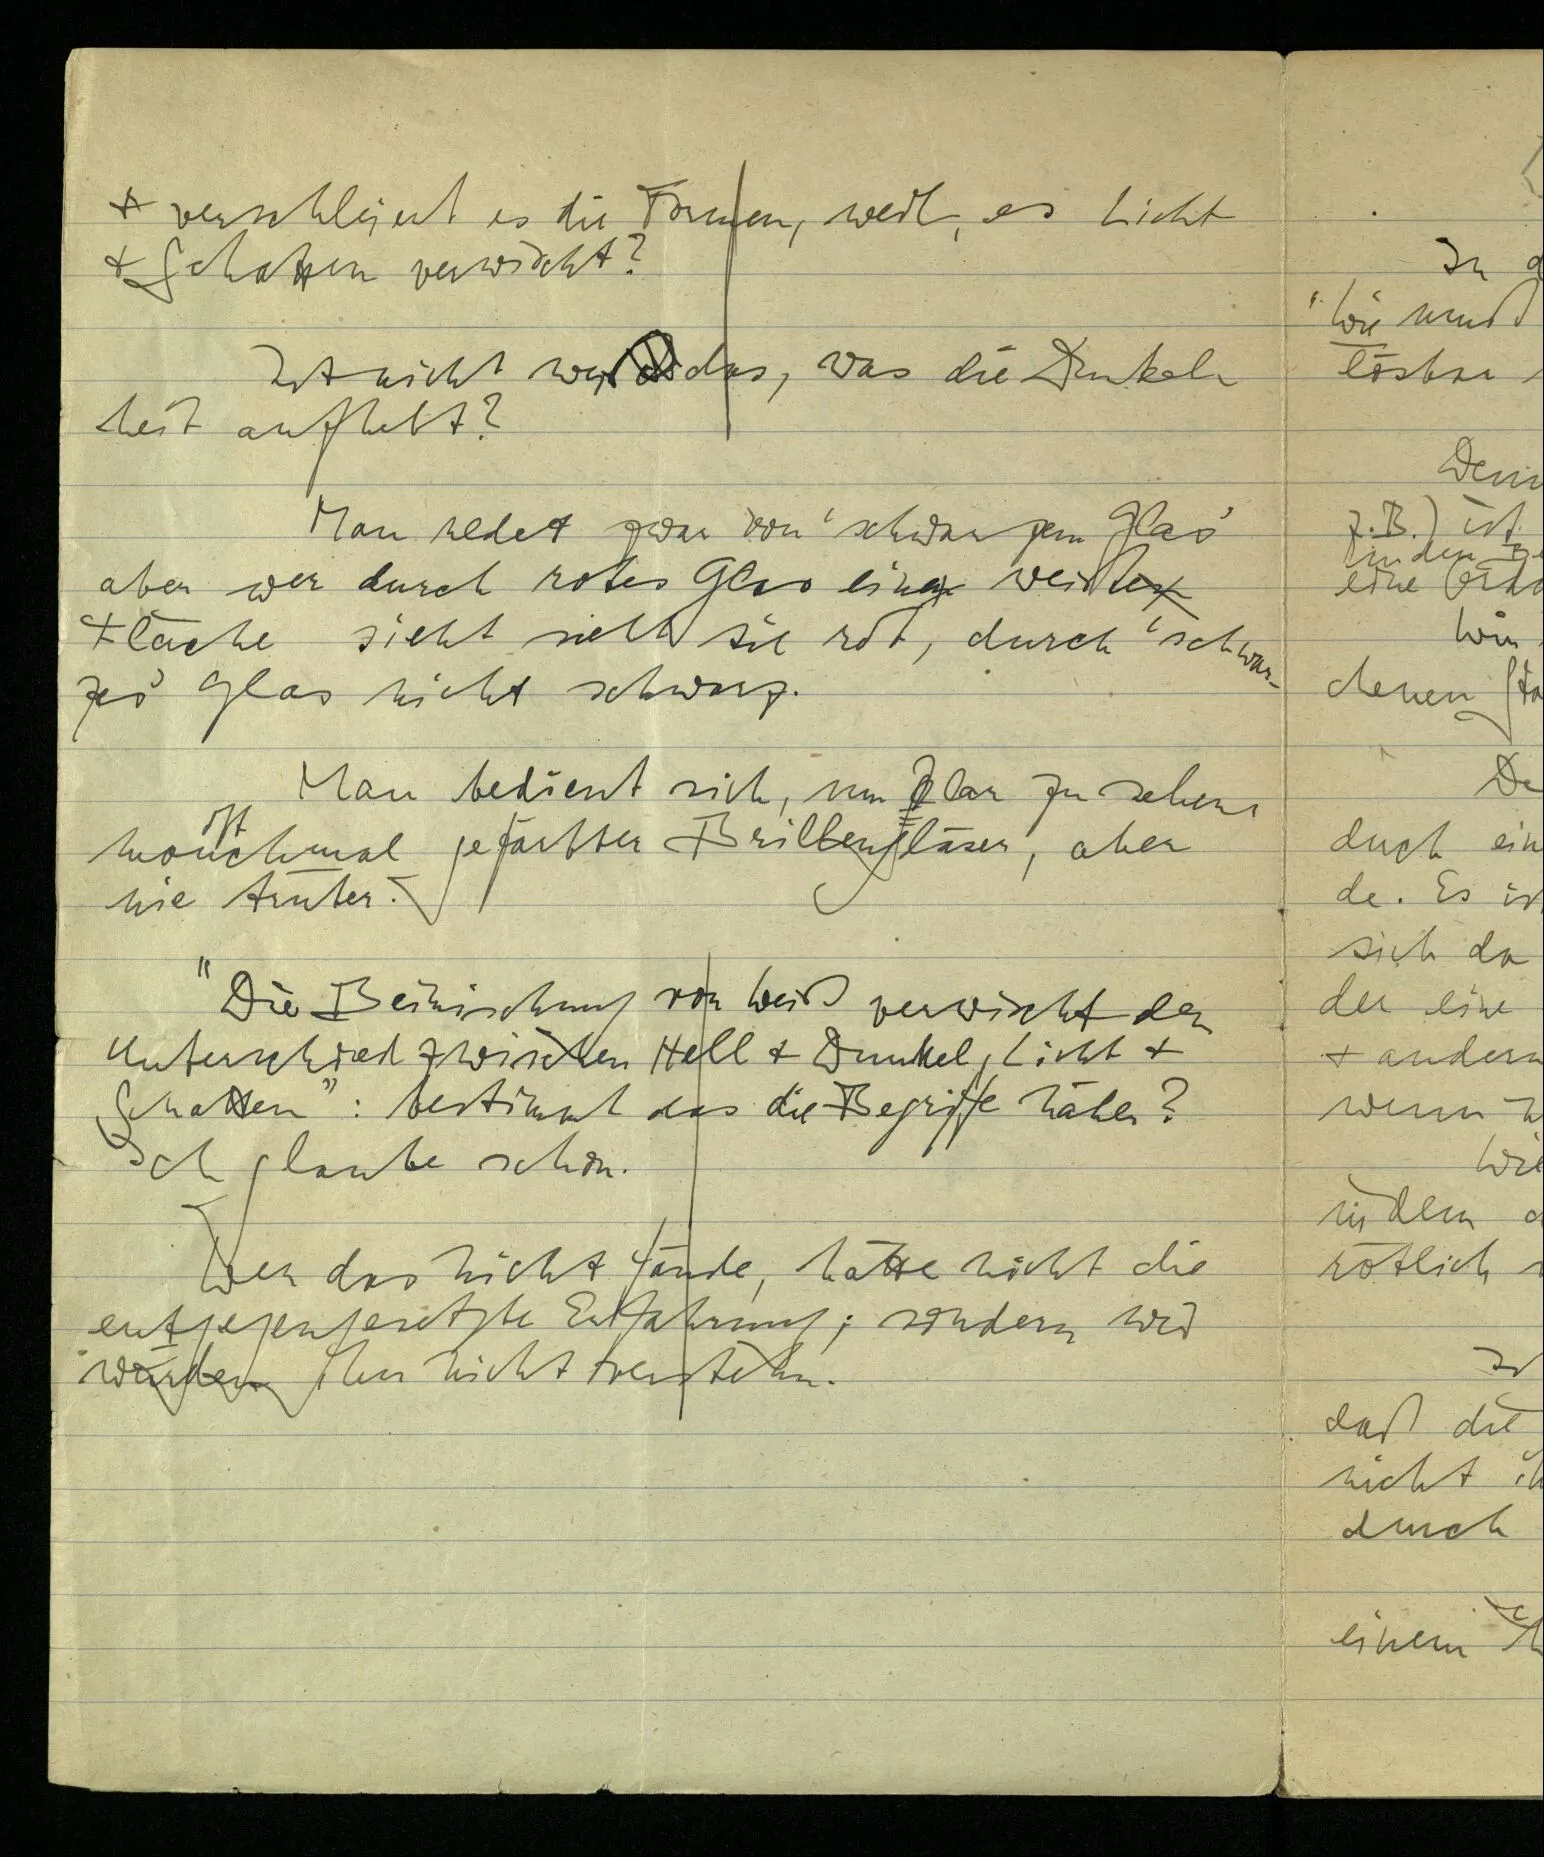 + verschleiert es die Formen, weil, es Licht
+ Schatten verwischt?
Ist nicht weiß das, was die Dunkel
heit aufhebt?
Man redet zwar von 'schwarzem Glas'
aber wer durch rotes Glas eine weiße
Fläche sieht sieht sie rot, durch 'schwar-
zes' Glas nicht schwarz.
Man bedient sich, um klar zu sehen,
oft
manchmal gefärbter Brillengläser, aber
nie trüber.
"Die Beimischung von Weiß verwischt den
Unterschied zwischen Hell + Dunkel, Licht +
Schatten": bestimmt das die Begriffe näher?
Ich glaube schon.
Wer das nicht fände, hätte nicht die
entgegengesetzte Erfahrung; sondern wir
würden ihn nicht verstehn.
In d
"Wie muß
lösbar
Denn
z.B.) ist
eine
Wir
denen
De
duch ein
de. Es ist
sich da
der eine
+ andern
wenn
Wie
indem
rötlich
daß die
nicht
durch
einem